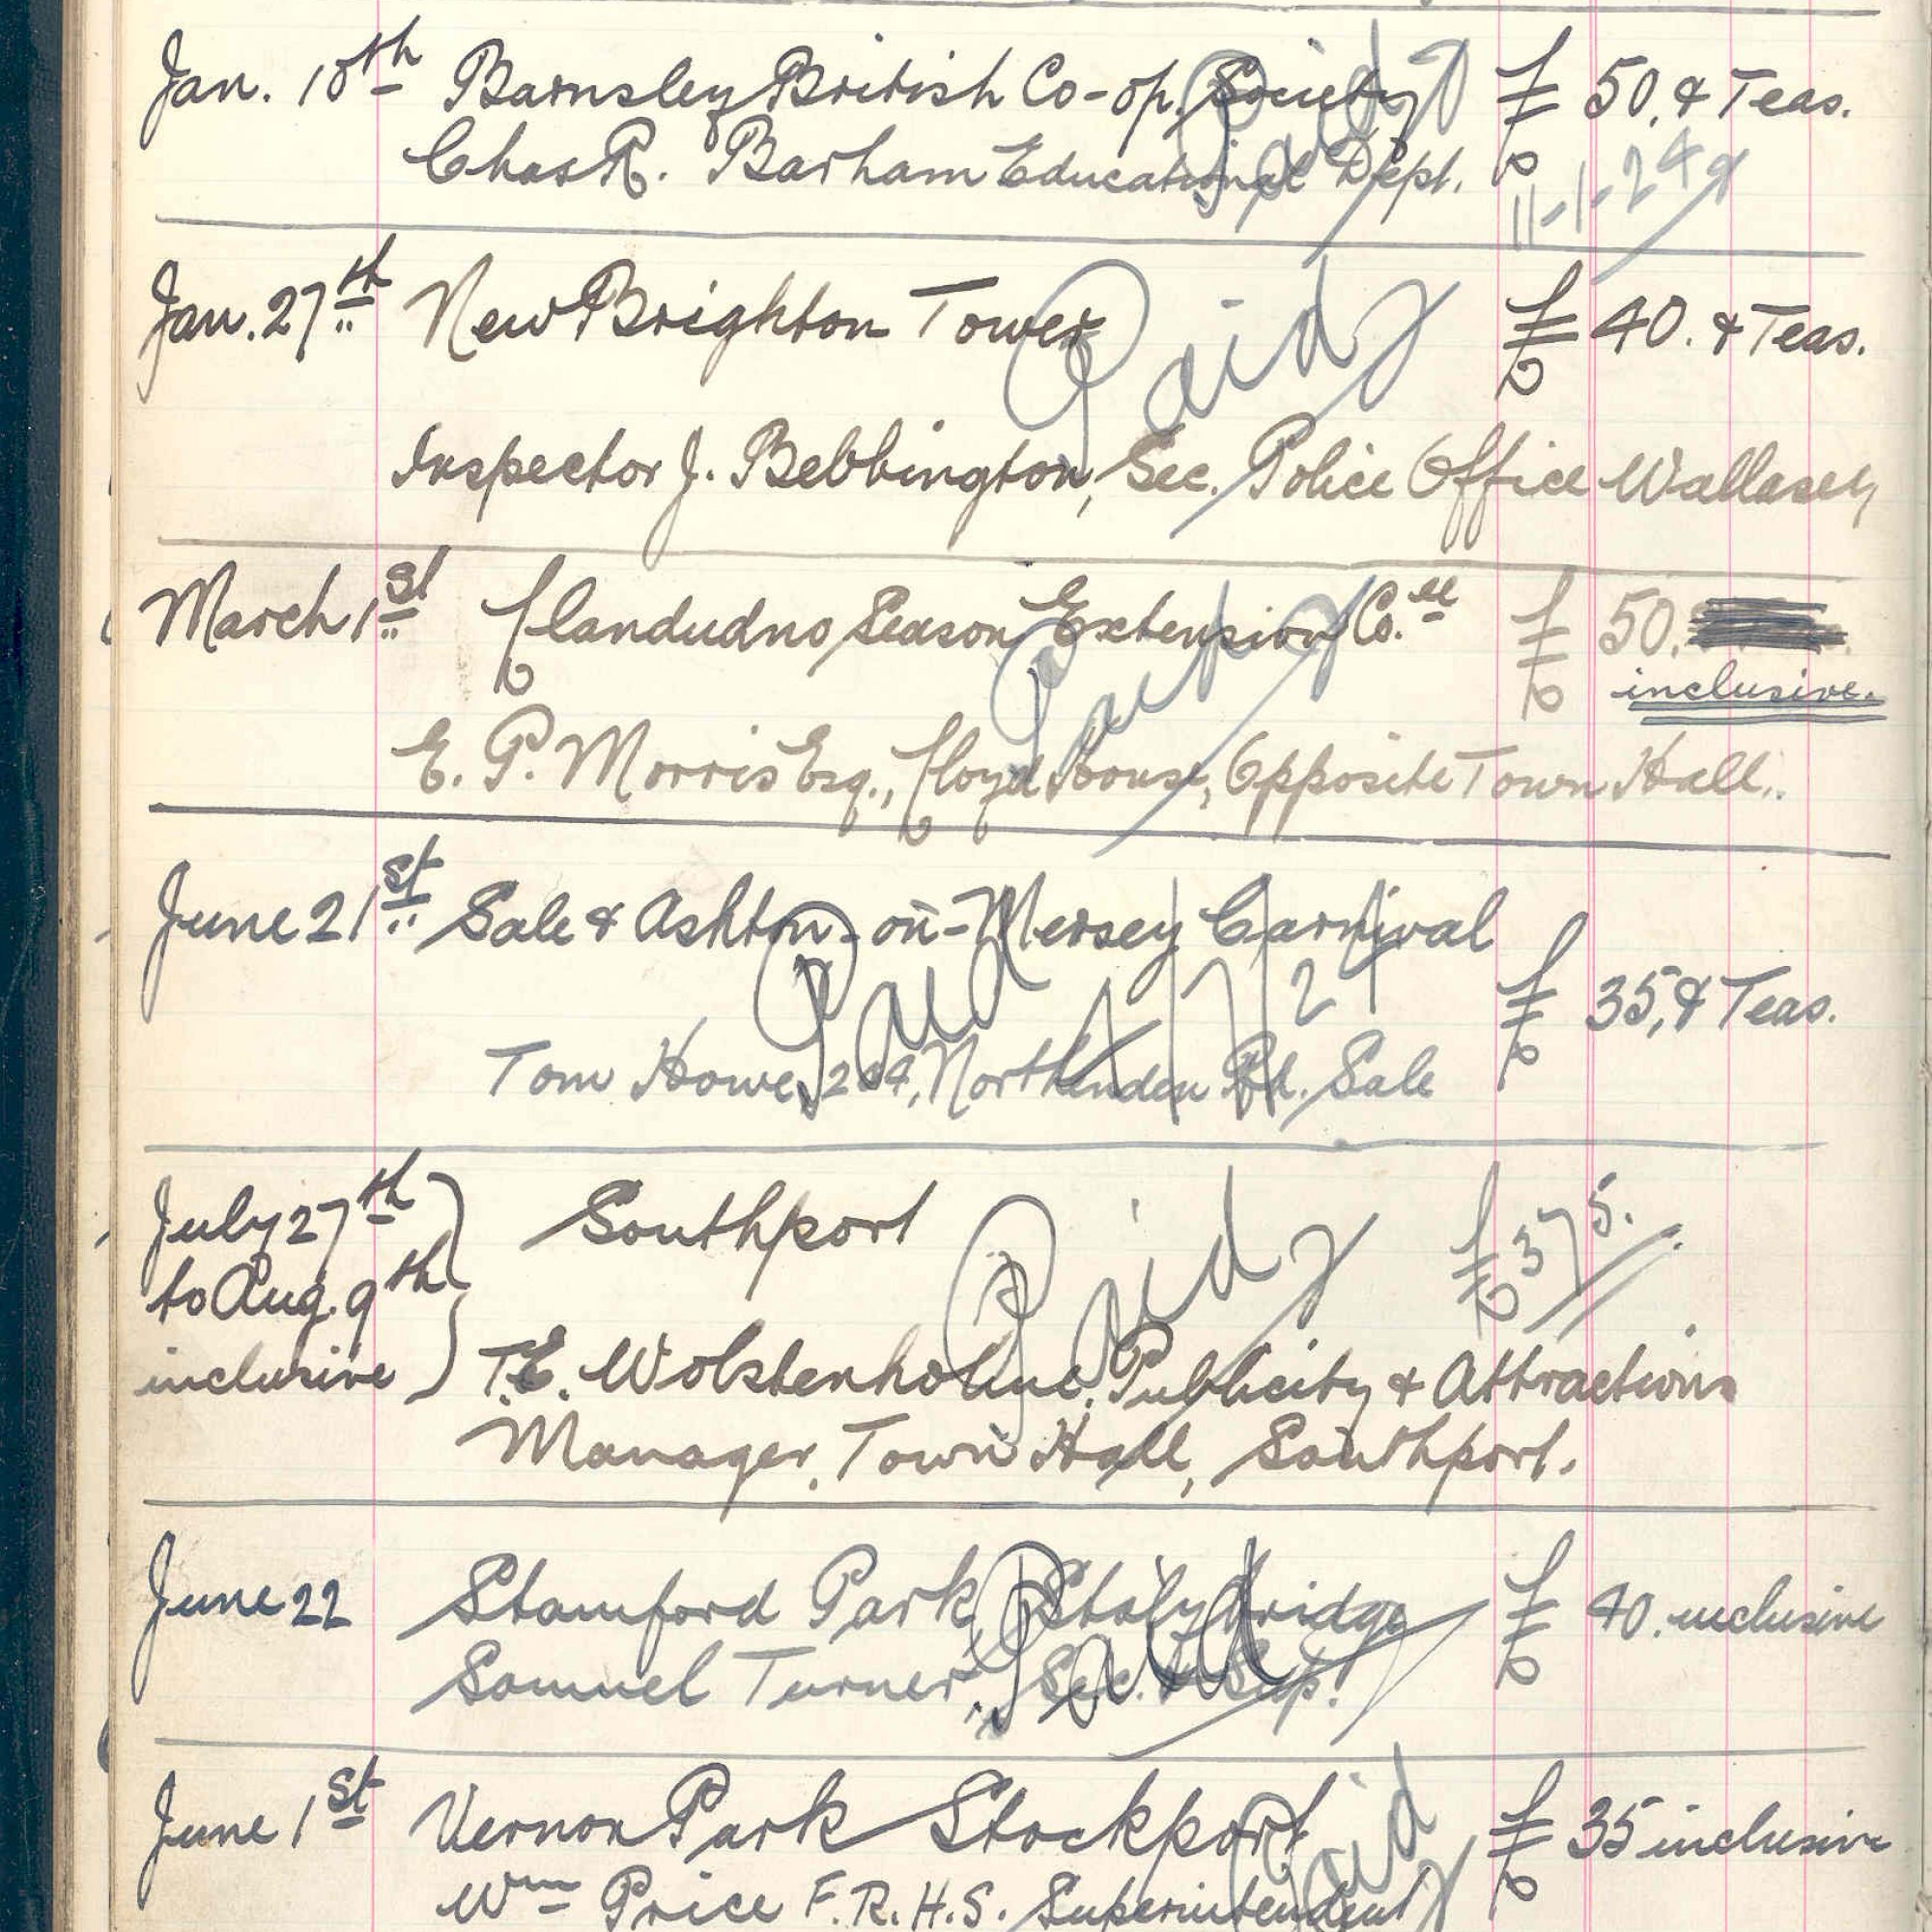 Jan. 10th Barnsley British Co-op. Society £50. & Teas.
Paid
Chas R. Barham Educational Dept.
11-1-24
Jan. 27th New Brighton Tower £40. & Teas.
Paid
Inspector J. Bebbington, Sec. Police Office Wallasey
March 1st Llandudno Season Extension Co.ee £50.
Paid
inclusive.
E. P. Morris Esq., Lloyd House, Opposite Town Hall.
June 21st Sale & Ashton-on-Mersey Carnival
Paid 4/7/24
£35, & Teas.
Tom Howe, 204, Northenden Rd. Sale
July 27th Southport £375.
to Aug. 9th
Paid
inclusive T.E. Wolstenholme, Publicity & Attractions
Manager, Town Hall, Southport.
June 22 Stamford Park Stalybridge £40. inclusive
Paid
Samuel Turner, Sec. & Sup.
June 1st Vernon Park Stockport £35 inclusive
Paid
Wm Price F.R.H.S. Superintendent